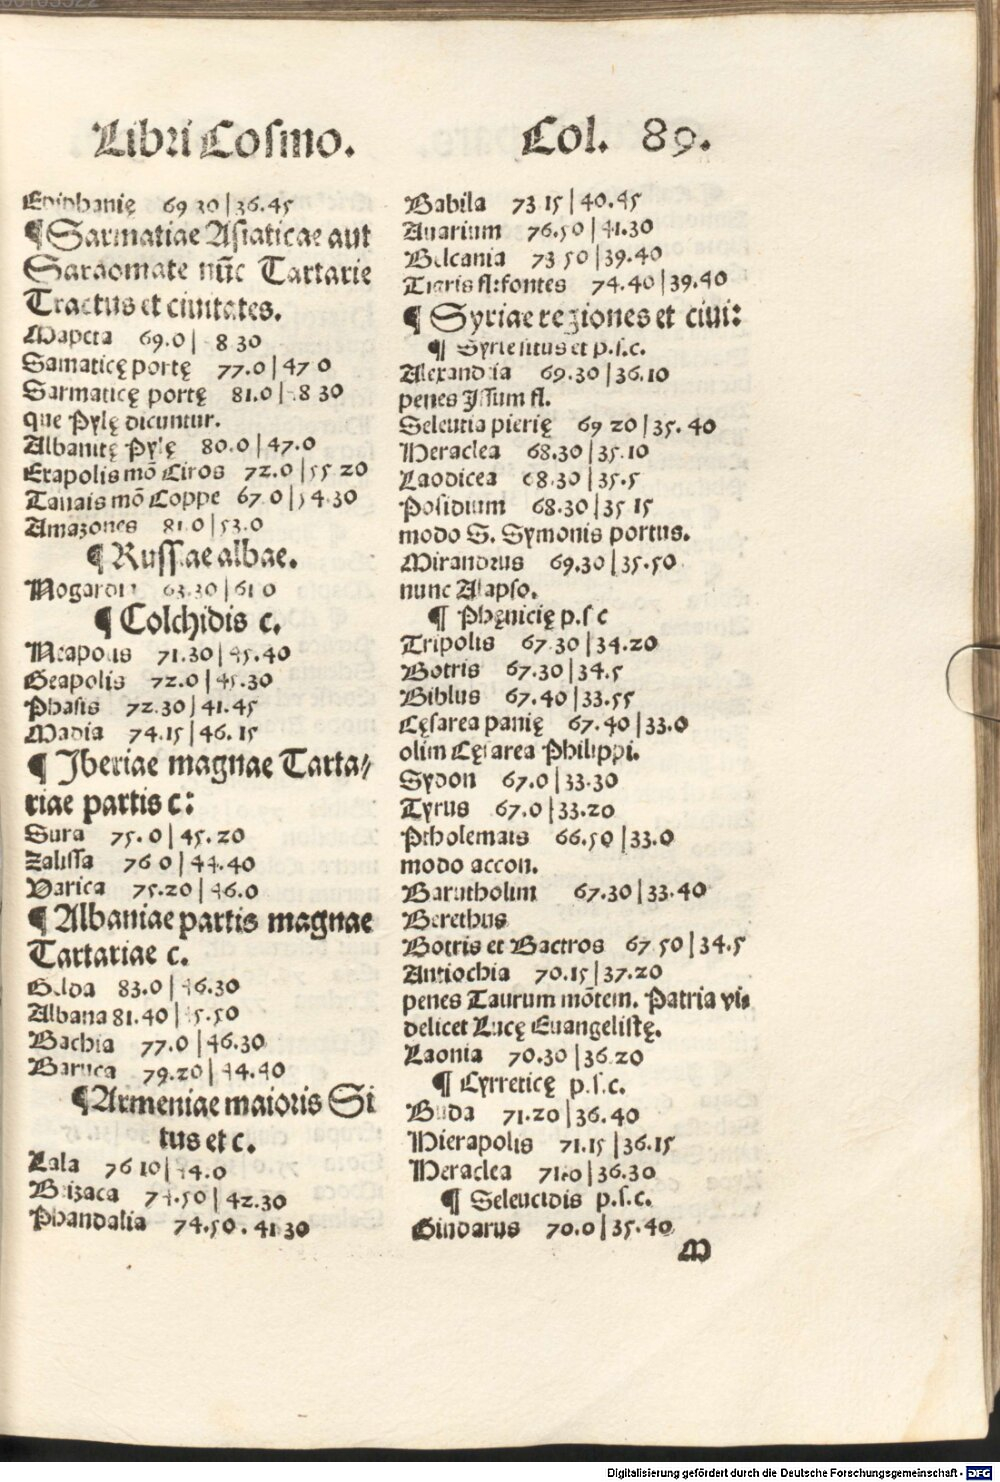 Libri Cosmo. Col. 89.
Epiphanię 69 30|36.45
¶ Sarmatiae Asiaticae aut
Saraomate nũc Tartarie
Tractus et ciuitates.
Mapeta 69.0| 8 30
Samaticę portę 77.0|47 0
Sarmaticę portę 81.0| 8 30
que Pylę dicuntur.
Albanitę Pylę 80.0|47.0
Exapolis mõ Ciros 72.0|55 20
Tanais mõ Coppe 67.0|54.30
Amazones 81.0|53.0
¶ Russiae albae.
Nogardi 63.30|61 0
¶ Colchidis c.
Neapolis 71.30|45.40
Geapolis 72.0|45.30
Phasis 72.30|41.45
Madia 74.15|46.15
¶ Iberiae magnae Tarta⸗
riae partis c:
Sura 75.0|45.20
Zalissa 76 0|44.40
Varica 75.20|46.0
¶ Albaniae partis magnae
Tartariae c.
Gelda 83.0|46.30
Albana 81.40|45.50
Bachia 77.0|46.30
Baruca 79.20|44.40
¶ Armeniae maioris Si
tus et c.
Lala 76 10|44.0
Brizaca 74.50|42.30
Phandalia 74.50.41 30
Babila 73 15|40.45
Auarium 76.50|41.30
Belcania 73 50|39.40
Tigris fl:fontes 74.40|39.40
¶ Syriae regiones et ciui:
¶ Syrie situs et p.s.c.
Alexandria 69.30|36.10
penes Issum fl.
Seleutia pierię 69 20|35.40
Heraclea 68.30|35.10
Laodicea 68.30|35.5
Posidium 68.30|35 15
modo S. Symonis portus.
Mirandrus 69.30|35.50
nunc Alapso.
¶ Phęnicię p.s c
Tripolis 67 30|34.20
Botris 67.30|34.5
Biblus 67.40|33.55
Cęsarea panię 67.40|33.0
olim Cęsarea Philippi.
Sydon 67.0|33.30
Tyrus 67.0|33.20
Ptholemais 66.50|33.0
modo accon.
Barutholim 67.30|33.40
Berethus
Botris et Bactros 67 50|34.5
Antiochia 70.15|37.20
penes Taurum mõtem. Patria vi⸗
delicet Lucę Euangelistę.
Laonia 70.30|36 20
¶ Cyrreticę p.s.c.
Buda 71.20|36.40
Hierapolis 71.15|36.15
Heraclea 71.0|36.30
¶ Seleucidis p.s.c.
Gindarus 70.0|35.40
M
Digitalisierung gefördert durch die Deutsche Forschungsgemeinschaft - DFG